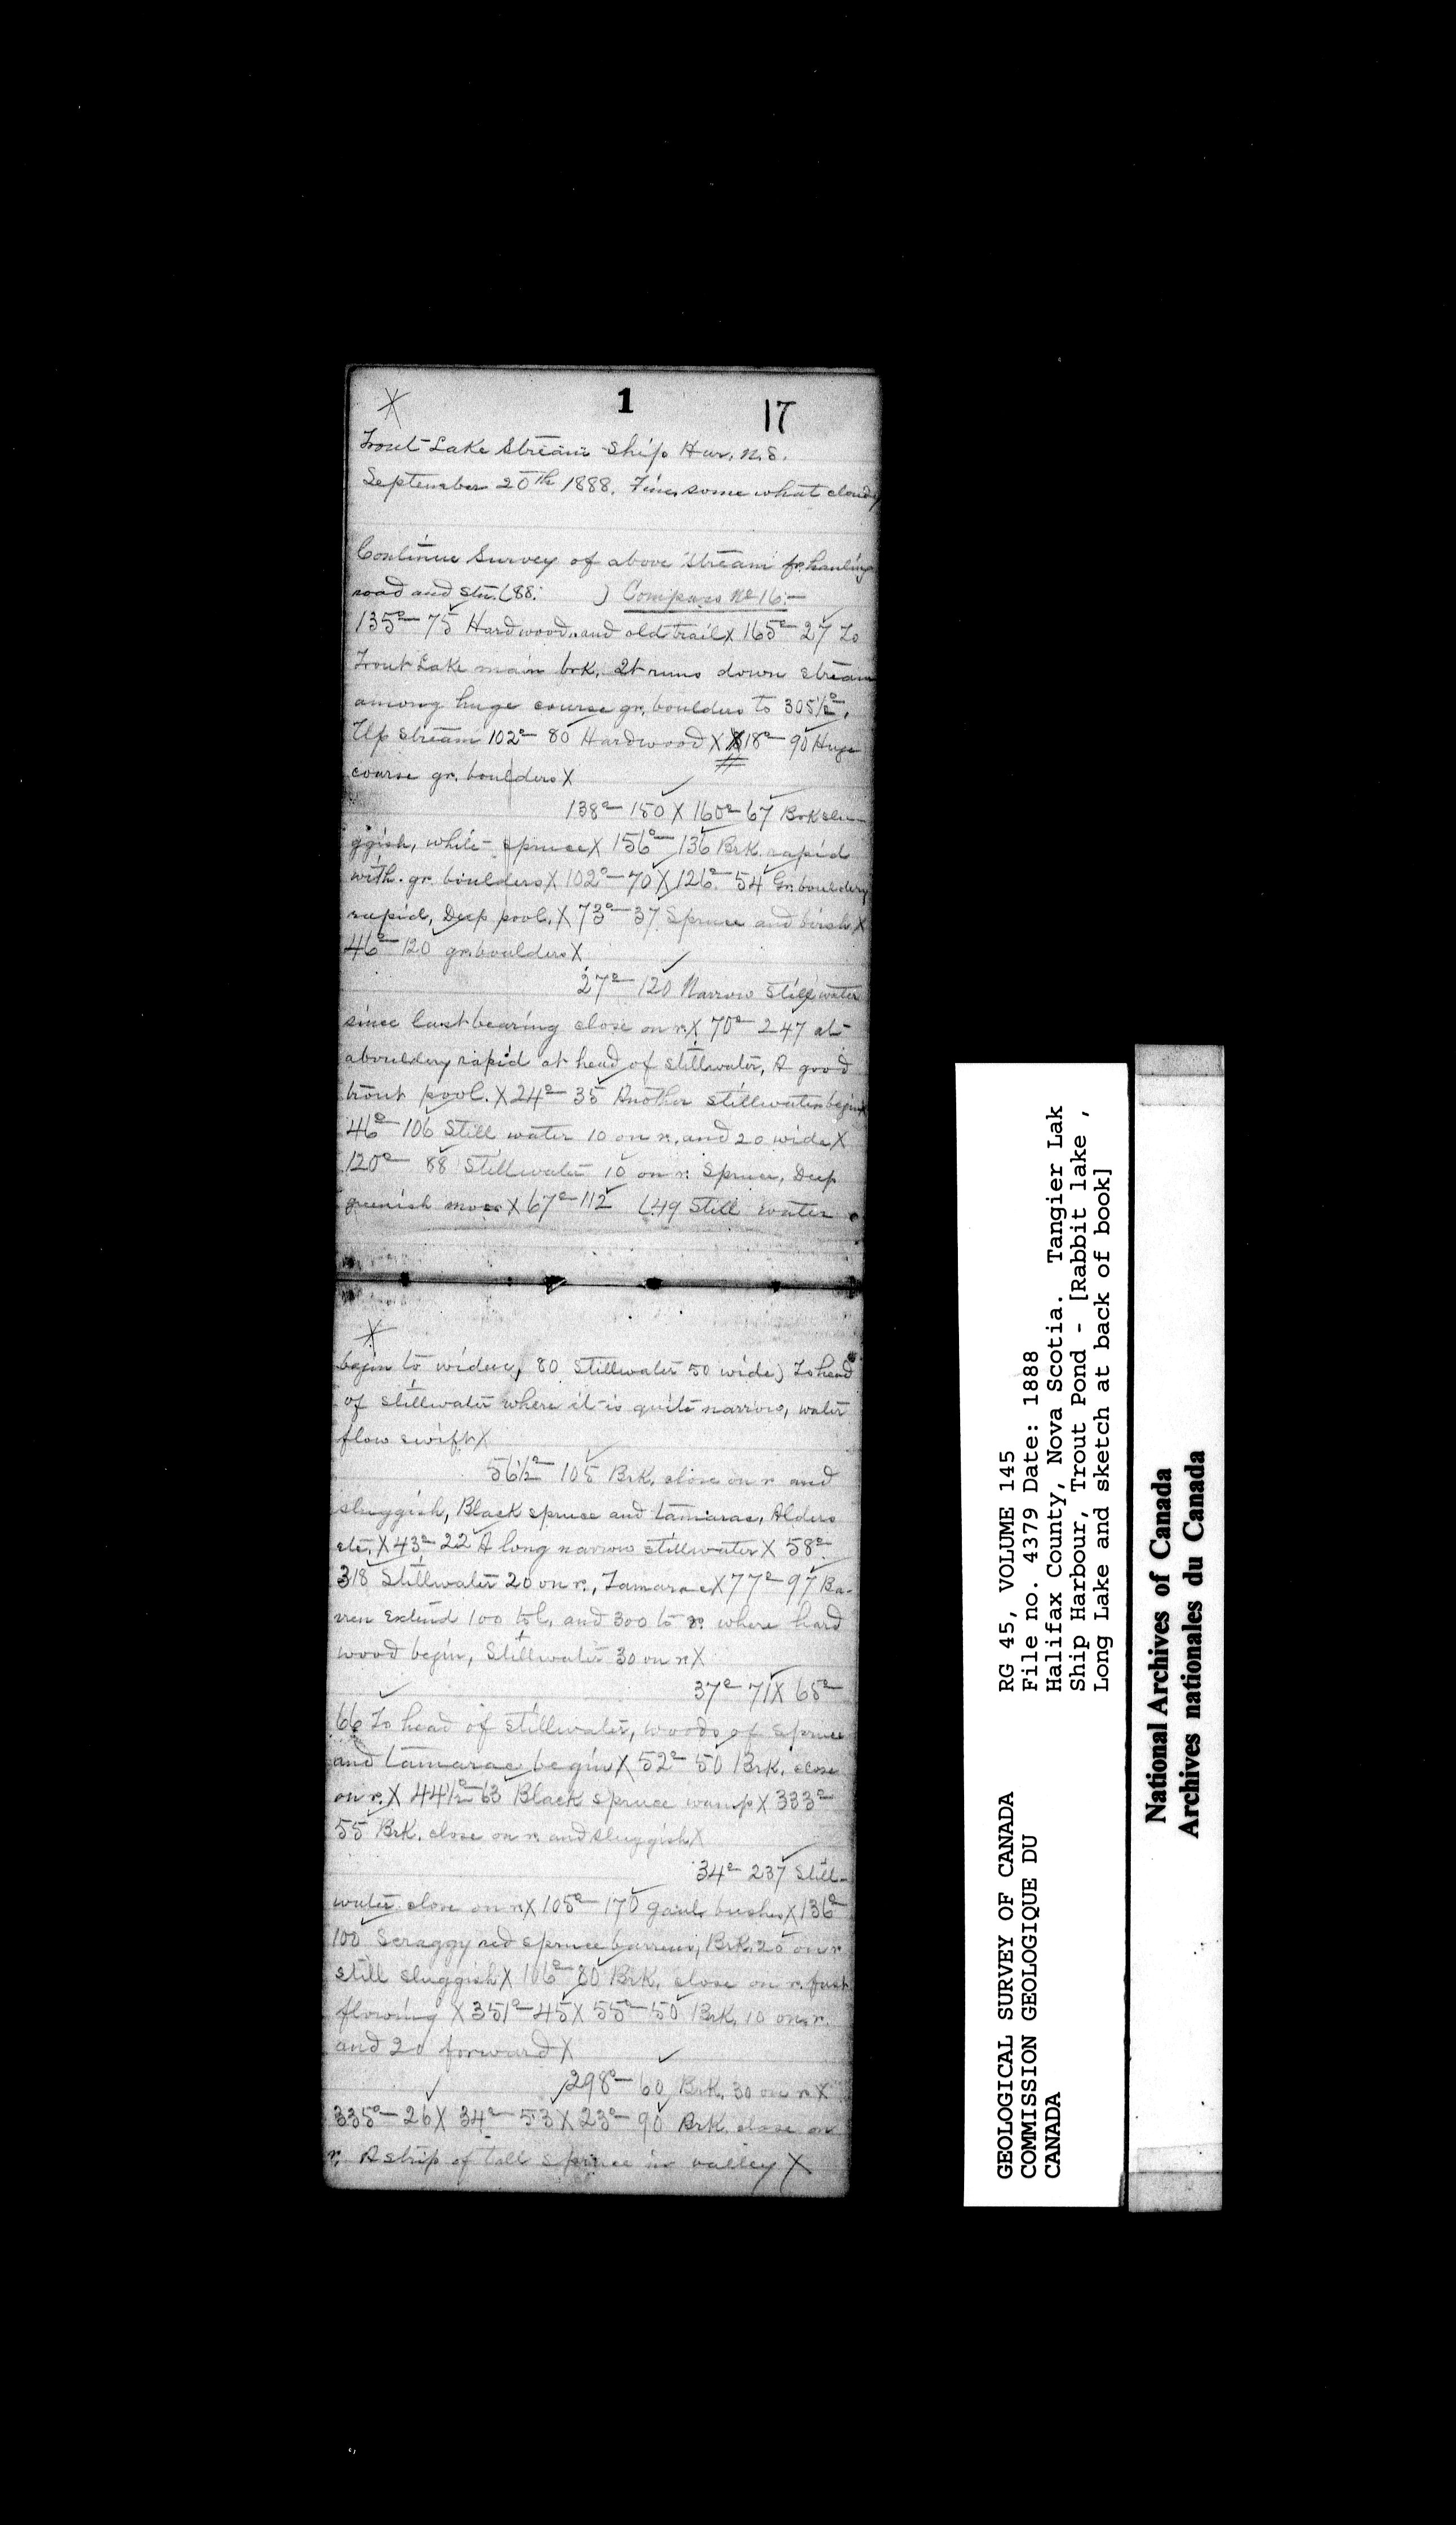 1
17
Trout Lake Stream Ship Har. N.S.
September 20th 1888. Fine, some what cloudy
Continue Survey of above stream fr. hauling
road and stn. (88. ) Compass No 16:-
135°- 75 Hardwood and old trail X 165°- 27 To
Trout Lake main brk. It runs down stream
among huge course gr. boulders to 305½°.
Up stream 102°- 80 Hardwood X 18°- 90 Huge
course gr. boulders X
138°- 150 X 160°- 67 Brk slu-
ggish, white spruce X 156°- 136 Brk. rapid
with gr. boulders X 102°- 70 X 126°- 54 Gr. bouldery
rapid, Deep pool. X 73°- 37 Spruce and birsh X
46°- 120 gr. boulders X
27°- 120 Narrow Still water
since last bearing close on r. X 70°- 247 at
a bouldery rapid at head of stillwater, A good
trout pool. X 24°- 35 Another stillwater begin X
46°- 106 Still water 10 on r. and 20 wide X
120°- 88 Stillwater 10 on r. Spruce, Deep
greenish moss X 67°- 112 (.49 Still water
begin to widen, 80 Stillwater 50 wide) To head
of stillwater where it is quite narrow, water
flow swift X
56½°- 105 Brk. close on r. and
sluggish, Black spruce and tamarac, Alders
etc. X 43°- 22 A long narrow stillwater X 58°-
318 Stillwater 20 on r., Tamarac X 77°- 97 Ba-
rren Extend 100 to l. and 300 to r. where hard
wood begin, Stillwater 30 on r. X
37°- 71 X 65°-
66 To head of stillwater, woods of spruce
and tamarac begin X 52°- 50 Brk. close
on r. X 44½°- 63 Black spruce wamp X 333°-
55 Brk. close on r. and sluggish X
34°- 237 Still-
water close on r. X 105°- 170 bushes X 136°-
100 Scraggy red spruce barrens, Brk. 20 on r.
still sluggish X 106°- 80 Brk. close on r. fast
flowing X 351°- 45 X 55°- 50 Brk. 10 on r.
and 20 forward X
298°- 60 Brk. 30 on r. X
335°- 26 X 34°- 53 X 23°- 90 Brk. close on
r. A strip of tall spruce in valley X
GEOLOGICAL SURVEY OF CANADA
COMMISSION GEOLOGIQUE DU
CANADA
RG 45, VOLUME 145
File no. 4379 Date: 1888
Halifax County, Nova Scotia. Tangier Lak
Ship Harbour, Trout Pond - [Rabbit lake ,
Long Lake and sketch at back of book]
National Archives of Canada
Archives nationales du Canada